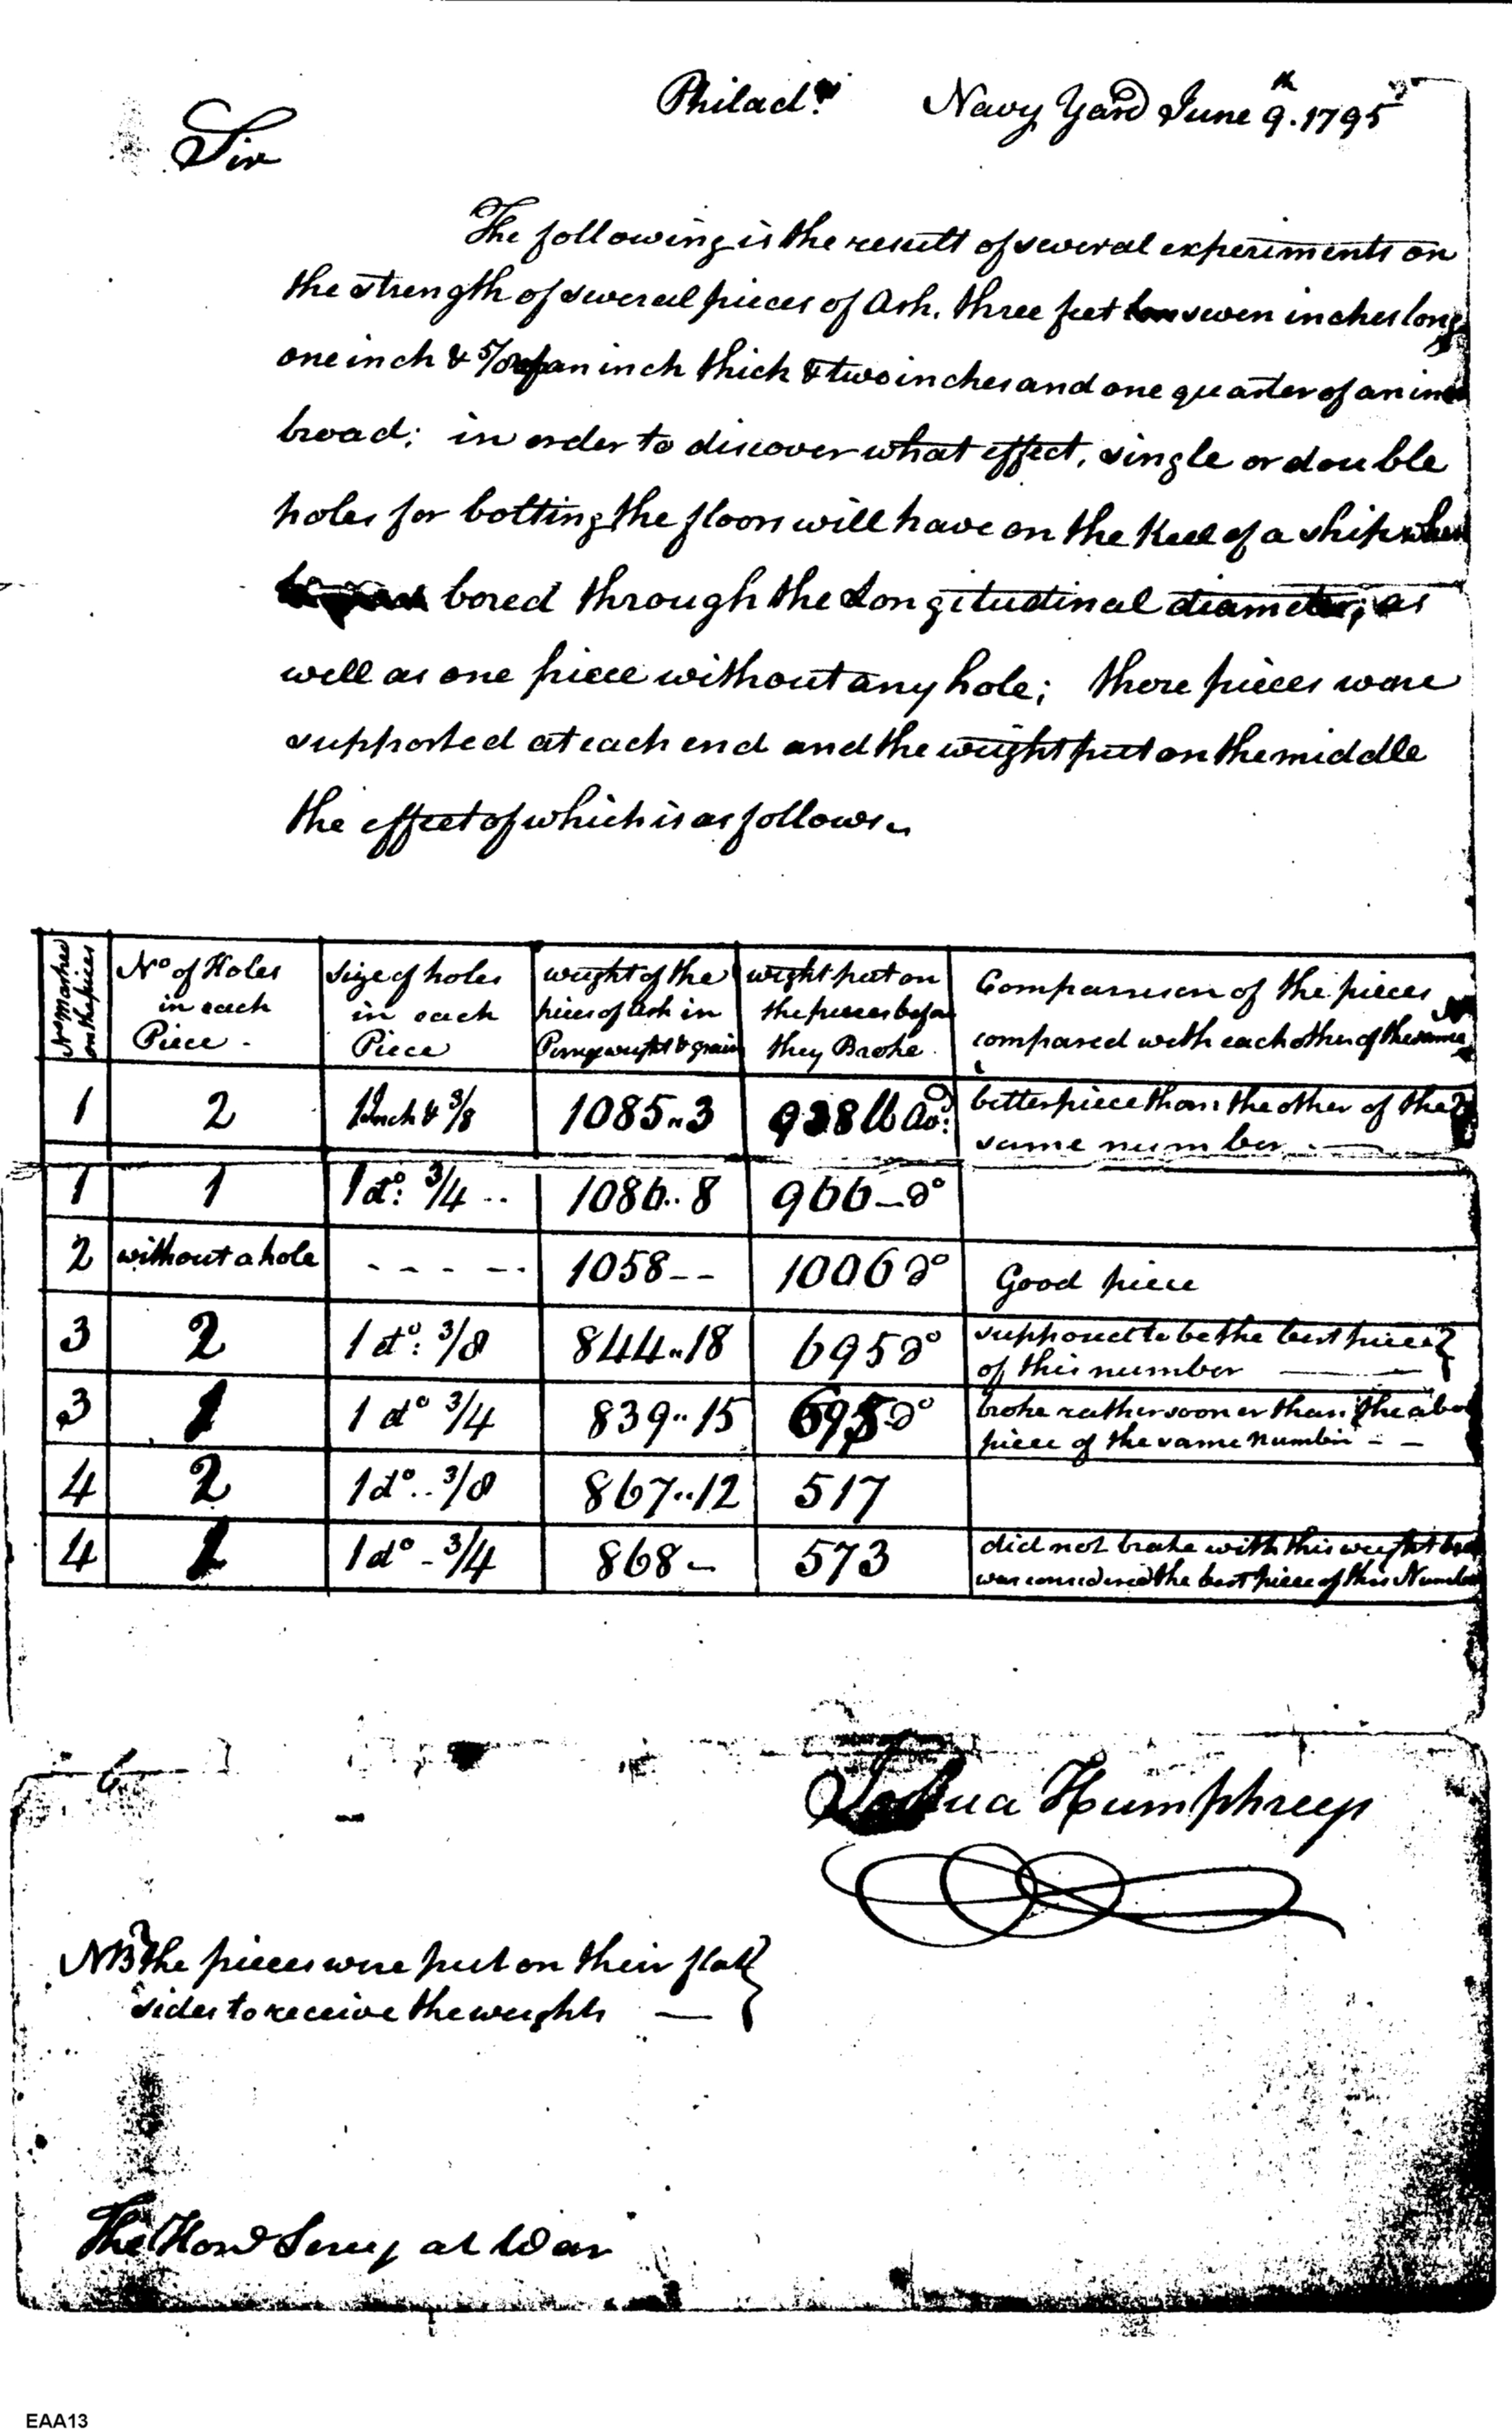 Philad.ª Navy Yard June 9.th 1795
Sir
The following is the result of several experiments on
the strength of several pieces of Ash, three feet seven inches long
one inch & 5/8 of an inch thick & two inches and one quarter of an inch
broad; in order to discover what effect, single or double
holes for bolting the floors will have on the Keel of a ship when
bored through the Longitudinal diameter, as
well as one piece without any hole; these pieces were
supported at each end and the weight put on the middle
the effect of which is as follows.
No Marked on the pieces | No of Holes in each Piece - | Size of holes in each Piece | weight of the pieces of Ash in Pennyweight & grain | weight put on the pieces before they Broke | Comparrison of the pieces compared with each other of the same No
1 | 2 | 1 Inch & 3/8 | 1085..3 | 938 lb Avd: | better piece than the other of the same number
1 | 1 | 1 do: 3/4 .. | 1086..8 | 966 - do
2 | without a hole | - - - - - | 1058 -- | 1006 do | Good piece
3 | 2 | 1 do: 3/8 | 844..18 | 695 do | supposed to be the best piece of this number
3 | 1 | 1 do 3/4 | 839..15 | 695 do | broke rather sooner than the above piece of the same number - -
4 | 2 | 1 do .. 3/8 | 867..12 | 517
4 | 1 | 1 do - 3/4 | 868 - | 573 | did not brake with this weight but was considered the best piece of this Number
Joshua Humphreys
NB The pieces were put on their flatt
sides to receive the weights
The Hond Secry at War
EAA13